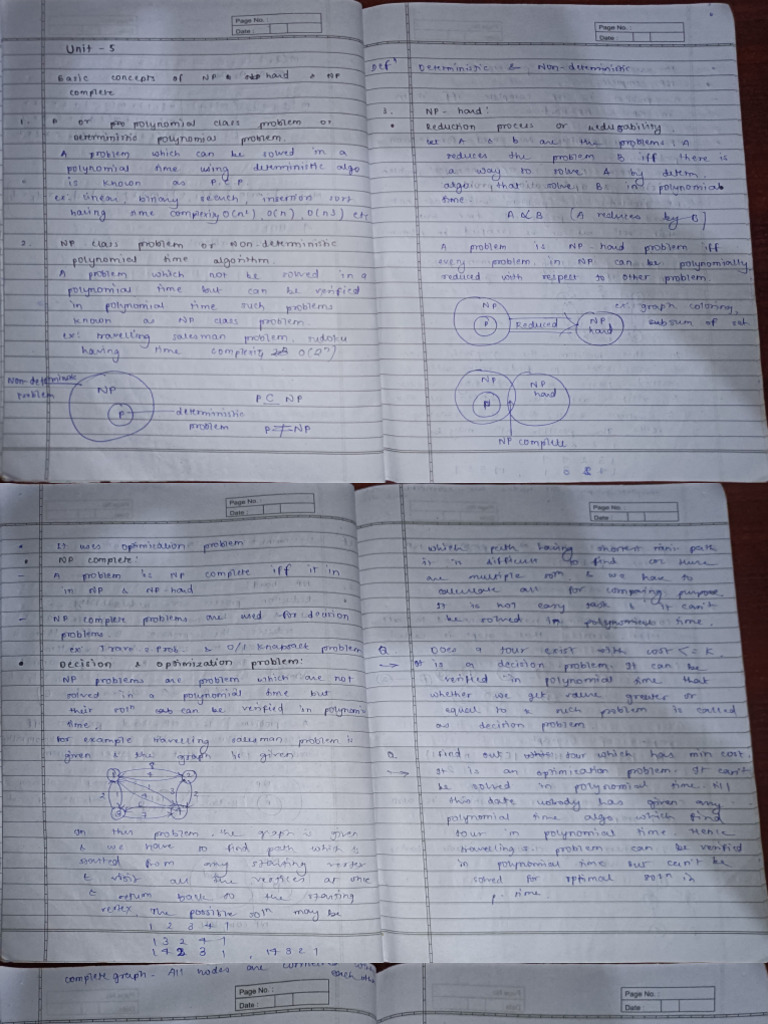 Page No. :
Date :
Unit - 5
Basic concepts of NP & NP hard & NP
complete
1. P or polynomial class problem or
Deterministic polynomial problem.
A problem which can be solved in a
polynomial time using deterministic algo
is known as P.C.P
ex: linear, binary search, insertion sort
having time complexity O(n'), O(n), O(n3) etc
2. NP-class problem or Non-deterministic
polynomial time algorithm.
A problem which not be solved in a
polynomial time but can be verified
in polynomial time such problems
known as NP class problem.
ex: travelling salesman problem, sudoku
having time complexity O(2ⁿ)
Non-deterministic
problem
NP
P
deterministic
problem
P ⊂ NP
P ≠ NP
Page No. :
Date :
Defⁿ Deterministic & Non-deterministic
3. NP-hard:
• Reduction process or Reducability
let A & B are the problems A
reduces the problem B iff there is
a way to solve A by determ.
algo that solve B in polynomial
time.
A ∝ B (A reduces by B)
A problem is NP-hard problem iff
every problem in NP can be polynomially
reduced with respect to other problem.
NP
P
Reduced
NP
hard
ex: graph coloring,
subsum of set
NP
P
NP
hard
NP complete
Page No. :
Date :
• It uses optimization problem
• NP complete:
- A problem is NP complete iff it in
in NP & NP-hard
- NP complete problems are used for decision
problems.
& 0/1 knapsack problem
• Decision & optimization problem:
NP problems are problem which are not
solved in a polynomial time but
their solⁿ can be verified in polynomial
time.
For example travelling salesman problem is
given & the graph is given
In this problem, the graph is given
& we have to find path which is
started from any starting vertex
& visit all the vertices at one
& return back to the starting
vertex. The possible solⁿ may be
1 2 3 4 1
1 3 2 4 1
1 4 2 3 1, 1 4 3 2 1
Page No. :
Date :
which path having shortest path
is difficult to find or there
are multiple solⁿ & we have to
calculate all for comparing purpose.
It is not easy task & it can't
be solved in polynomial time.
Q. Does a tour exist with cost <= K.
→ It is a decision problem. It can be
verified in polynomial time that
whether we get value greater or
equal to such problem is called
as decision problem
Q (Find out) tour which has min cost.
→ It is an optimization problem. It can't
be solved in polynomial time till
this date nobody has given any
polynomial time algo, which find
tour in polynomial time. Hence
travelling problem can be verified
in polynomial time but can't be
solved for optimal solⁿ in
p. time
complete graph - All nodes are
Page No. :
Date :
Page No. :
Date :